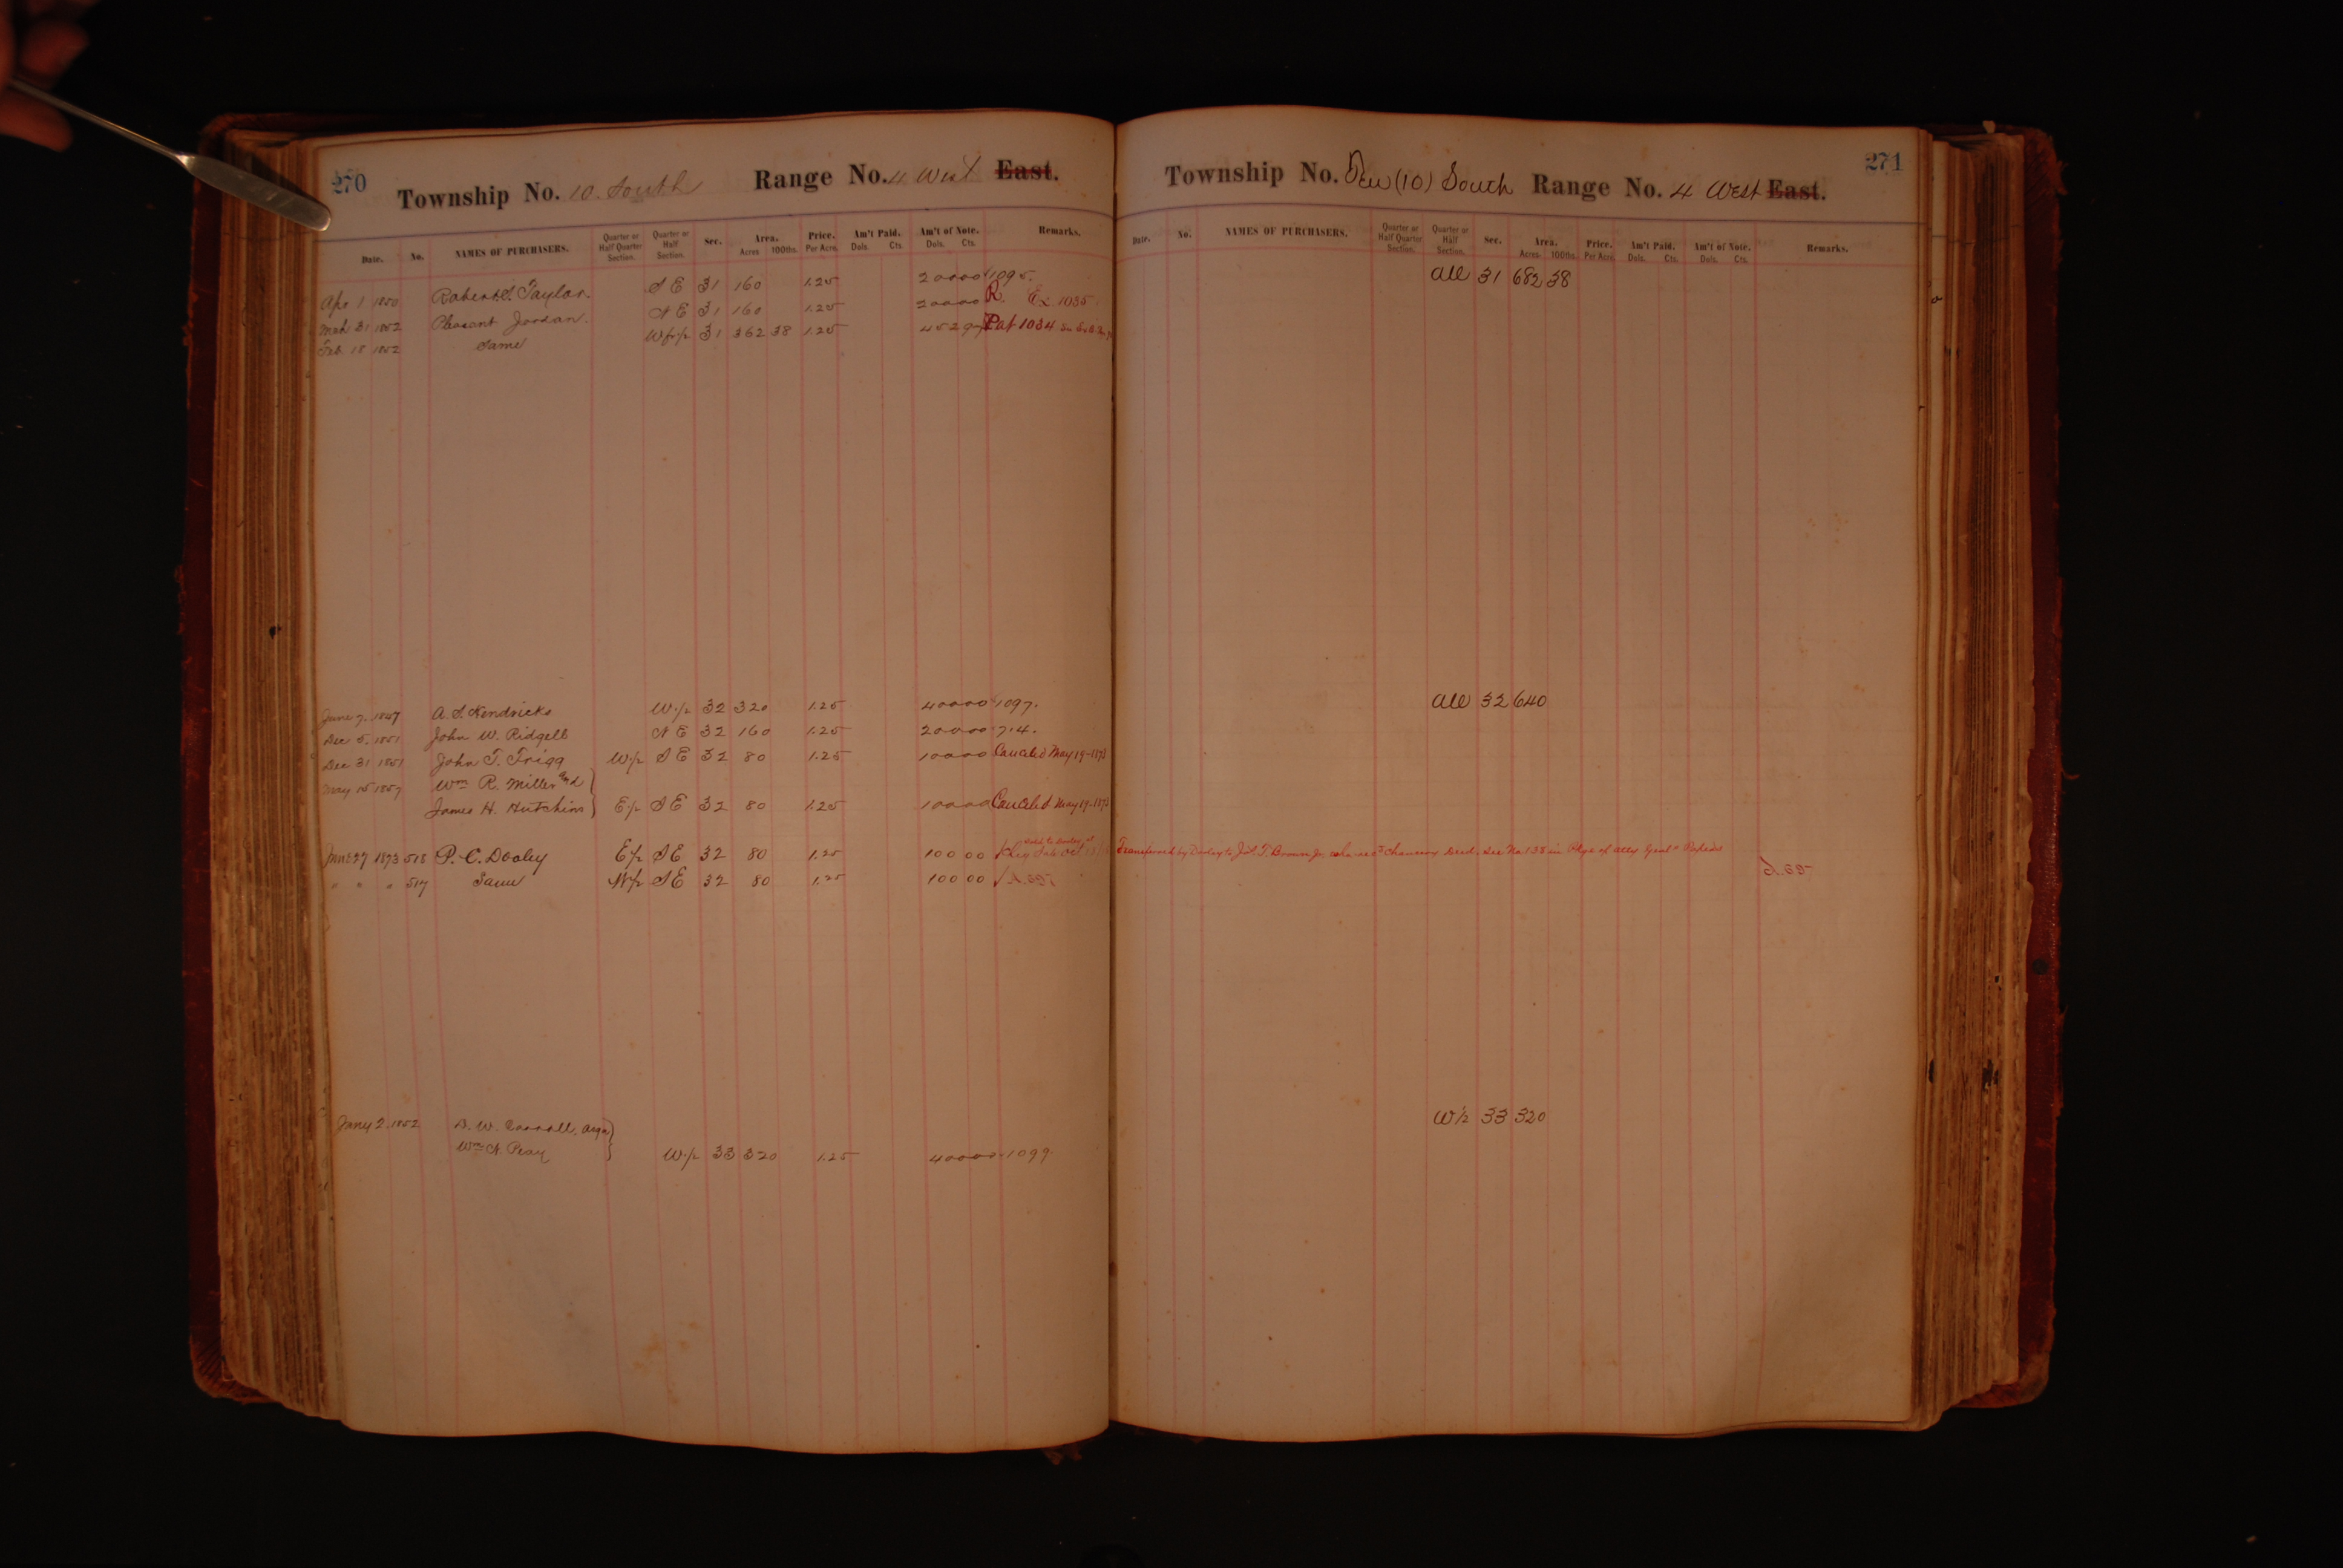 270
Township No. 10. South Range No. 4 West East.
Date. No. NAMES OF PURCHASERS. Quarter or Half Quarter Section. Quarter or Half Section. Sec. Area. Acres 100ths. Price. Per Acre. Am't Paid. Dols. Cts. Am't of Note. Dols. Cts. Remarks.
Apr 1 1850 Robert S. Taylor. S E 31 160 1.25 200 00 1095.
Mch 31 1852 Pleasant Jordan. N E 31 160 1.25 200 00 R. Ex. 1035
Feb 18 1852 Same W fr/2 31 362 38 1.25 452 97 Pat 1034
June 7. 1847 A. S. Kendricks W./2 32 320 1.25 400 00 1097.
Dec 5. 1851 John W. Ridgell N E 32 160 1.25 200 00 714.
Dec 31 1851 John T. Trigg W/2 S E 32 80 1.25 100 00 Canceled May 19-1873
May 15 1857 Wm R. Miller and
James H. Hutchins E/2 S E 32 80 1.25 100 00 Canceled May 19-1873
June 27 1873 518 P. C. Dooley E/2 S E 32 80 1.25 100 00
" " " 517 Same W/2 S E 32 80 1.25 100 00
Jany 2. 1852 D. W. Carroll, asgn
Wm N. Peay W./2 33 320 1.25 400 00 1099.
271
Township No. Ten (10) South Range No. 4 West East.
Date. No. NAMES OF PURCHASERS. Quarter or Half Quarter Section. Quarter or Half Section. Sec. Area. Acres. 100ths. Price. Per Acre. Am't Paid. Dols. Cts. Am't of Note. Dols. Cts. Remarks.
All 31 682 38
All 32 640
Transferred by Dooley to Jno. T. Brown Jr. who recd Chancery Deed. See No 138 in Pkge of Atty Genl's Papers
W/2 33 320